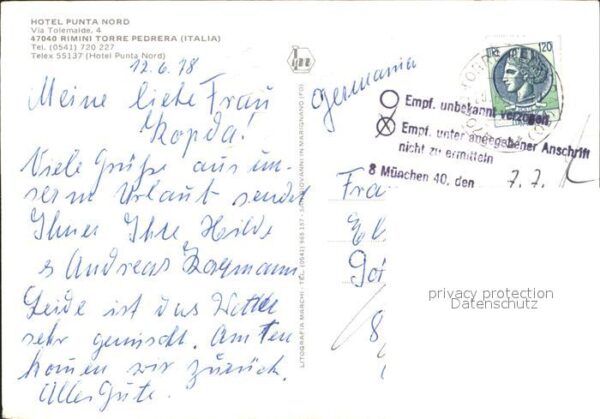 HOTEL PUNTA NORD
Via Tolemaide, 4
47040 RIMINI TORRE PEDRERA (ITALIA)
Tel. (0541) 720 227
Telex 55137 (Hotel Punta Nord)
12.6.78
Meine liebe Frau
Kopda!
Viele Grüße aus un-
serm Urlaub sendet
Ihnen Ihre Heilde
& Andreas
Leide ist das Wetter
sehr gemischt. Am
komen wir zurück.
Alles Gute.
LITOGRAFIA MARCHI - TEL. (0541) 955 157 - S. GIOVANNI IN MARIGNANO (FO)
Germania
120
Empf. unbekannt verzogen
Empf. unter angegebener Anschrift
nicht zu ermitteln
8 München 40, den 7.7.
Fra
El
8
privacy protection
Datenschutz